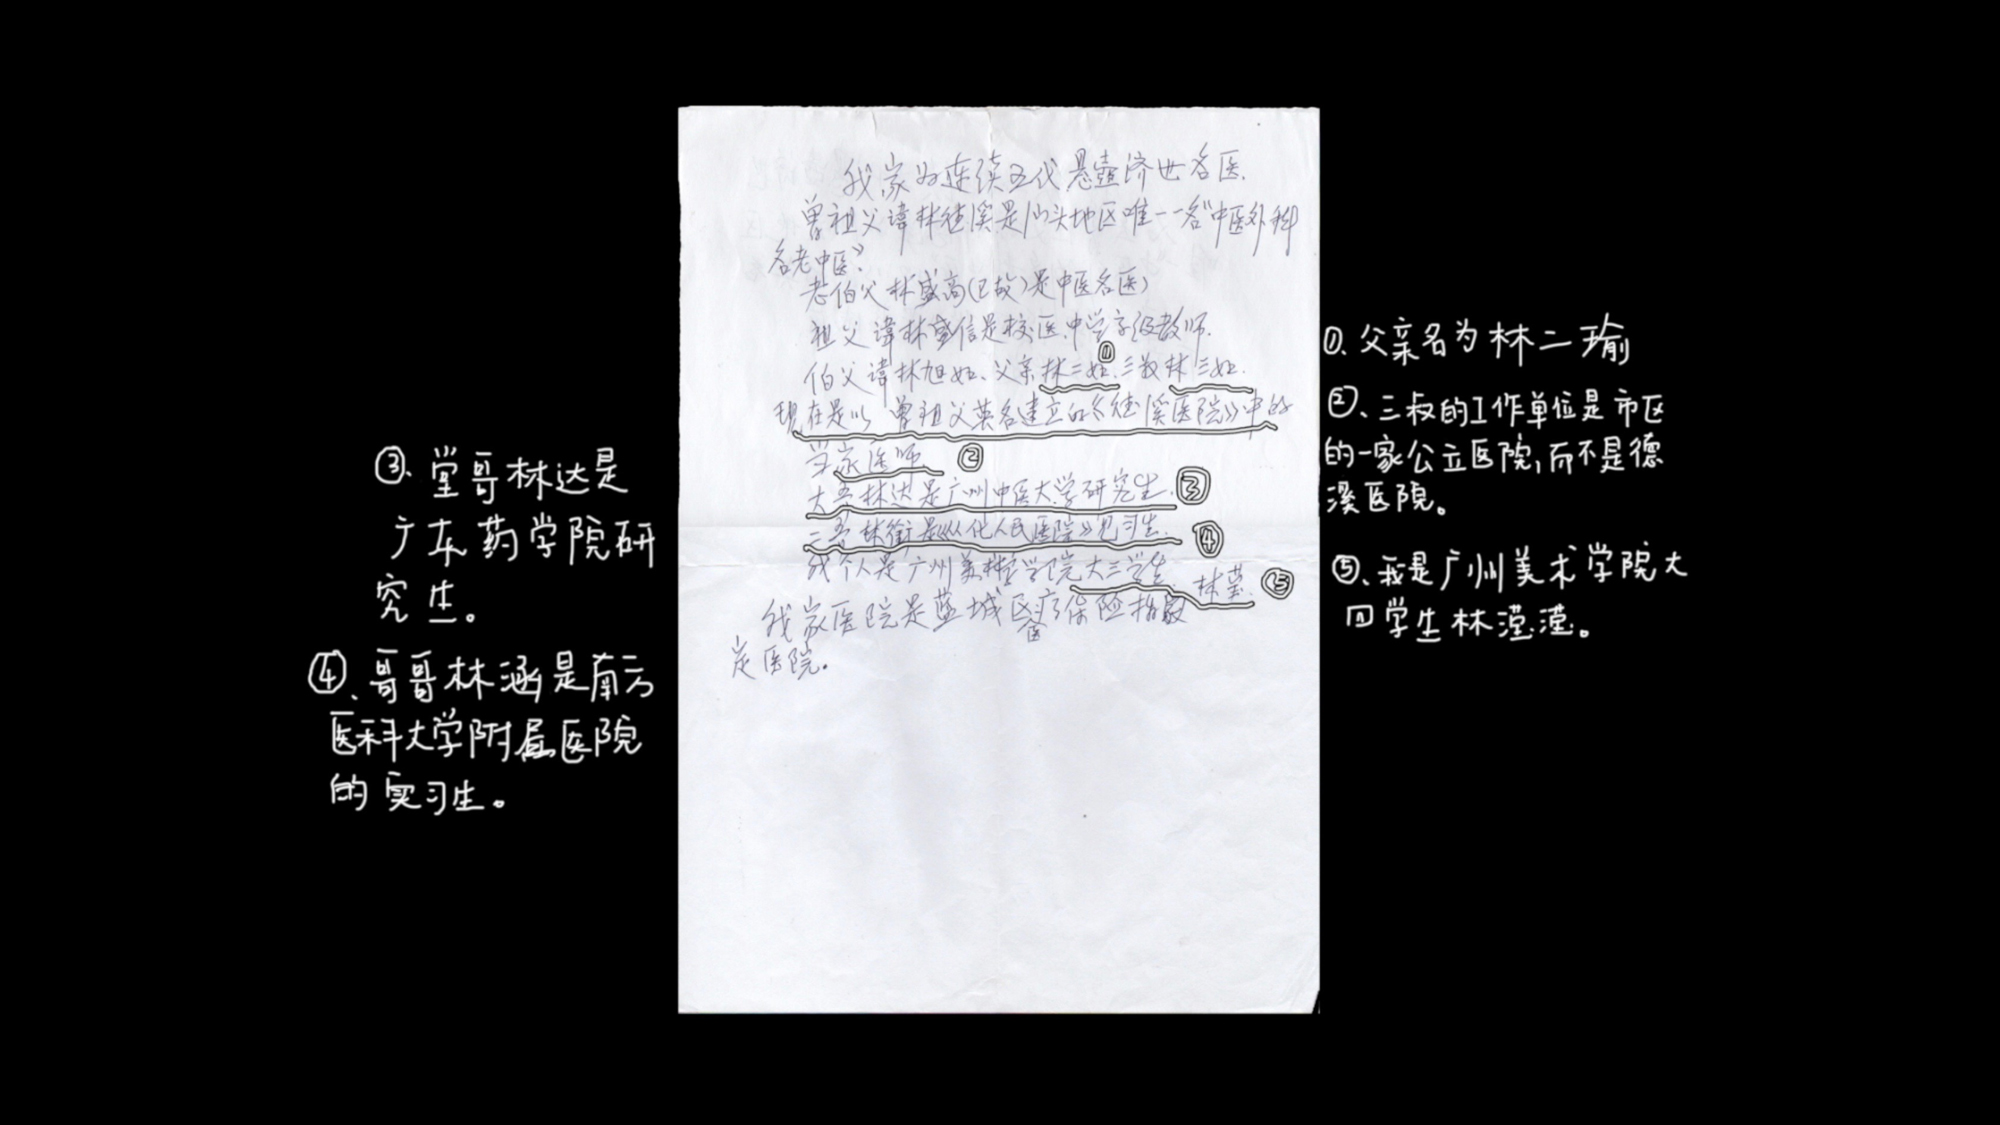 我家为连续五代悬壶济世名医.
曾祖父讳林德溪是汕头地区唯一一名"中医外科
名老中医".
老伯父林盛高(已故)是中医名医)
祖父讳林盛信是校医.中学高级教师.
①
伯父讳林旭如、父亲林二如.三叔林三如.
现在是以曾祖父英名建立的《德溪医院》中的
当家医师 ②
大哥林达是广州中医大学研究生. ③
二哥林衔是《从化人民医院》见习生. ④
我个人是广州美术学院大三学生. 林莹. ⑤
我家医院是蓝城区医疗保险指
定医院。
①、父亲名为林二瑜
②、三叔的工作单位是市区
的一家公立医院,而不是德
溪医院。
③、堂哥林达是
广东药学院研
究生。
④、哥哥林涵是南方
医科大学附属医院
的实习生。
⑤、我是广州美术学院大
四学生林滢滢。